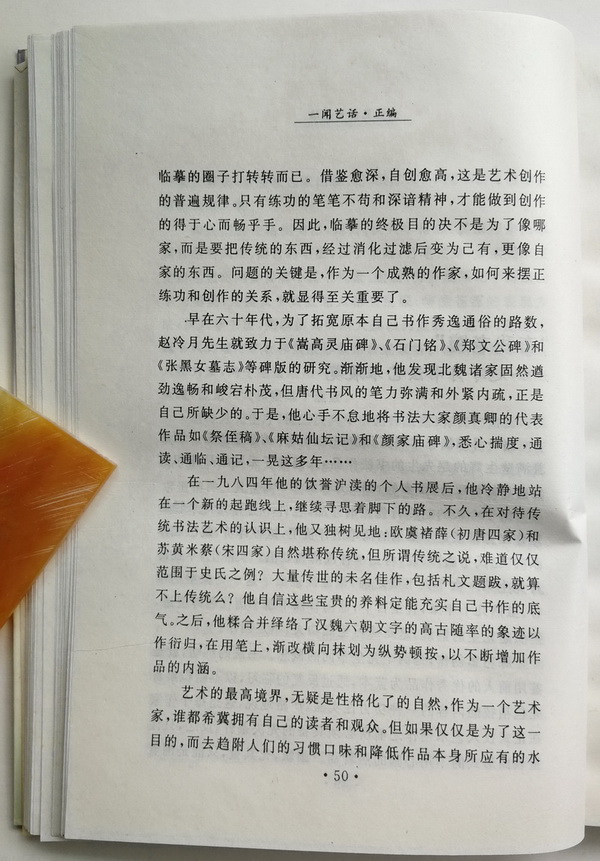 一闻艺话·正编
临摹的圈子打转转而已。借鉴愈深,自创愈高,这是艺术创作
的普遍规律。只有练功的笔笔不苟和深谙精神,才能做到创作
的得于心而畅乎手。因此,临摹的终极目的决不是为了像哪
家,而是要把传统的东西,经过消化过滤后变为己有,更像自
家的东西。问题的关键是,作为一个成熟的作家,如何来摆正
练功和创作的关系,就显得至关重要了。
早在六十年代,为了拓宽原本自己书作秀逸通俗的路数,
赵冷月先生就致力于《嵩高灵庙碑》、《石门铭》、《郑文公碑》和
《张黑女墓志》等碑版的研究。渐渐地,他发现北魏诸家固然遒
劲逸畅和峻宕朴茂,但唐代书风的笔力弥满和外紧内疏,正是
自己所缺少的。于是,他心手不怠地将书法大家颜真卿的代表
作品如《祭侄稿》、《麻姑仙坛记》和《颜家庙碑》,悉心揣度,通
读、通临、通记,一晃这多年……
在一九八四年他的饮誉沪渎的个人书展后,他冷静地站
在一个新的起跑线上,继续寻思着脚下的路。不久,在对待传
统书法艺术的认识上,他又独树见地:欧虞褚薛(初唐四家)和
苏黄米蔡(宋四家)自然堪称传统,但所谓传统之说,难道仅仅
范围于史氏之例?大量传世的未名佳作,包括札文题跋,就算
不上传统么?他自信这些宝贵的养料定能充实自己书作的底
气。之后,他糅合并绎络了汉魏六朝文字的高古随率的象迹以
作衍归,在用笔上,渐改横向抹划为纵势顿按,以不断增加作
品的内涵。
艺术的最高境界,无疑是性格化了的自然,作为一个艺术
家,谁都希冀拥有自己的读者和观众。但如果仅仅是为了这一
目的,而去趋附人们的习惯口味和降低作品本身所应有的水
·50·